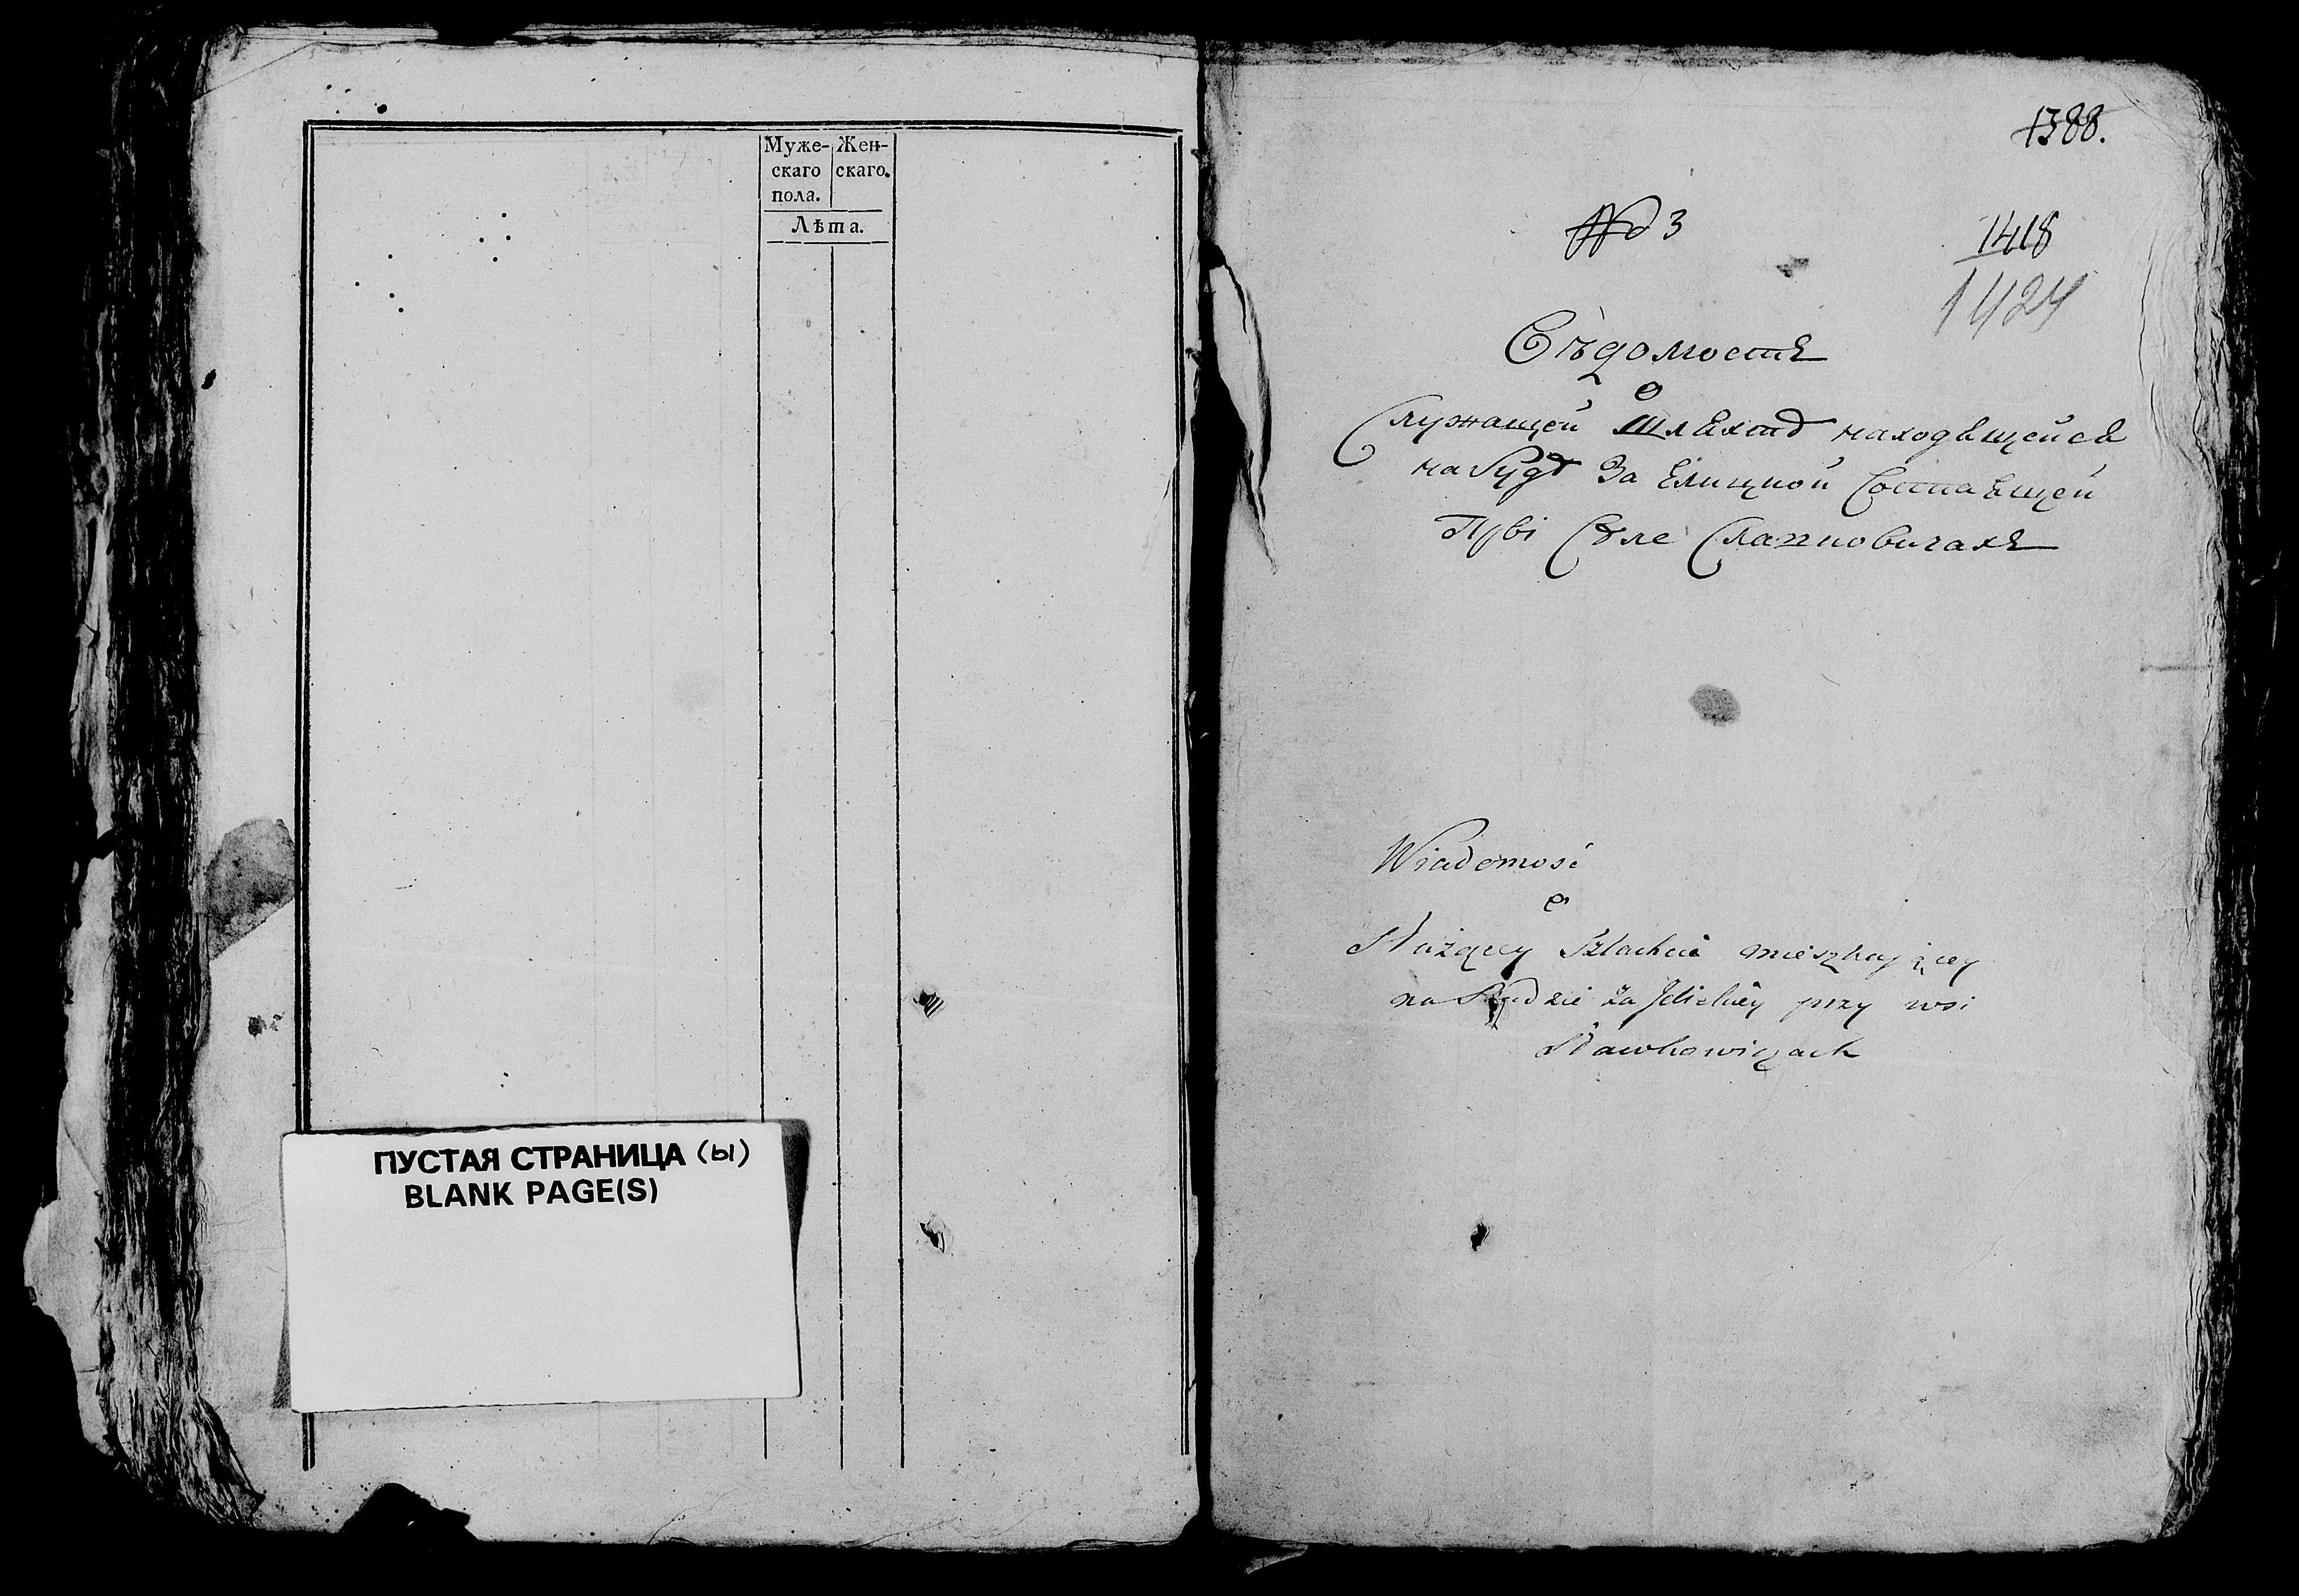 Муже- Жен-
скаго скаго.
пола.
Лѣта.
ПУСТАЯ СТРАНИЦА (ы)
BLANK PAGE(S)
1388.
№ 3
1418
1424
Вѣдомостъ
о
Служащей Шляхтѣ находящейся
на Рудѣ За Елицкой Состаящей
При Селе Славковичахъ
Wiadomość
o
Służącey Szlachcie mieszkającey
na Rudzie za Jelicką przy wsi
Sławkowiczach